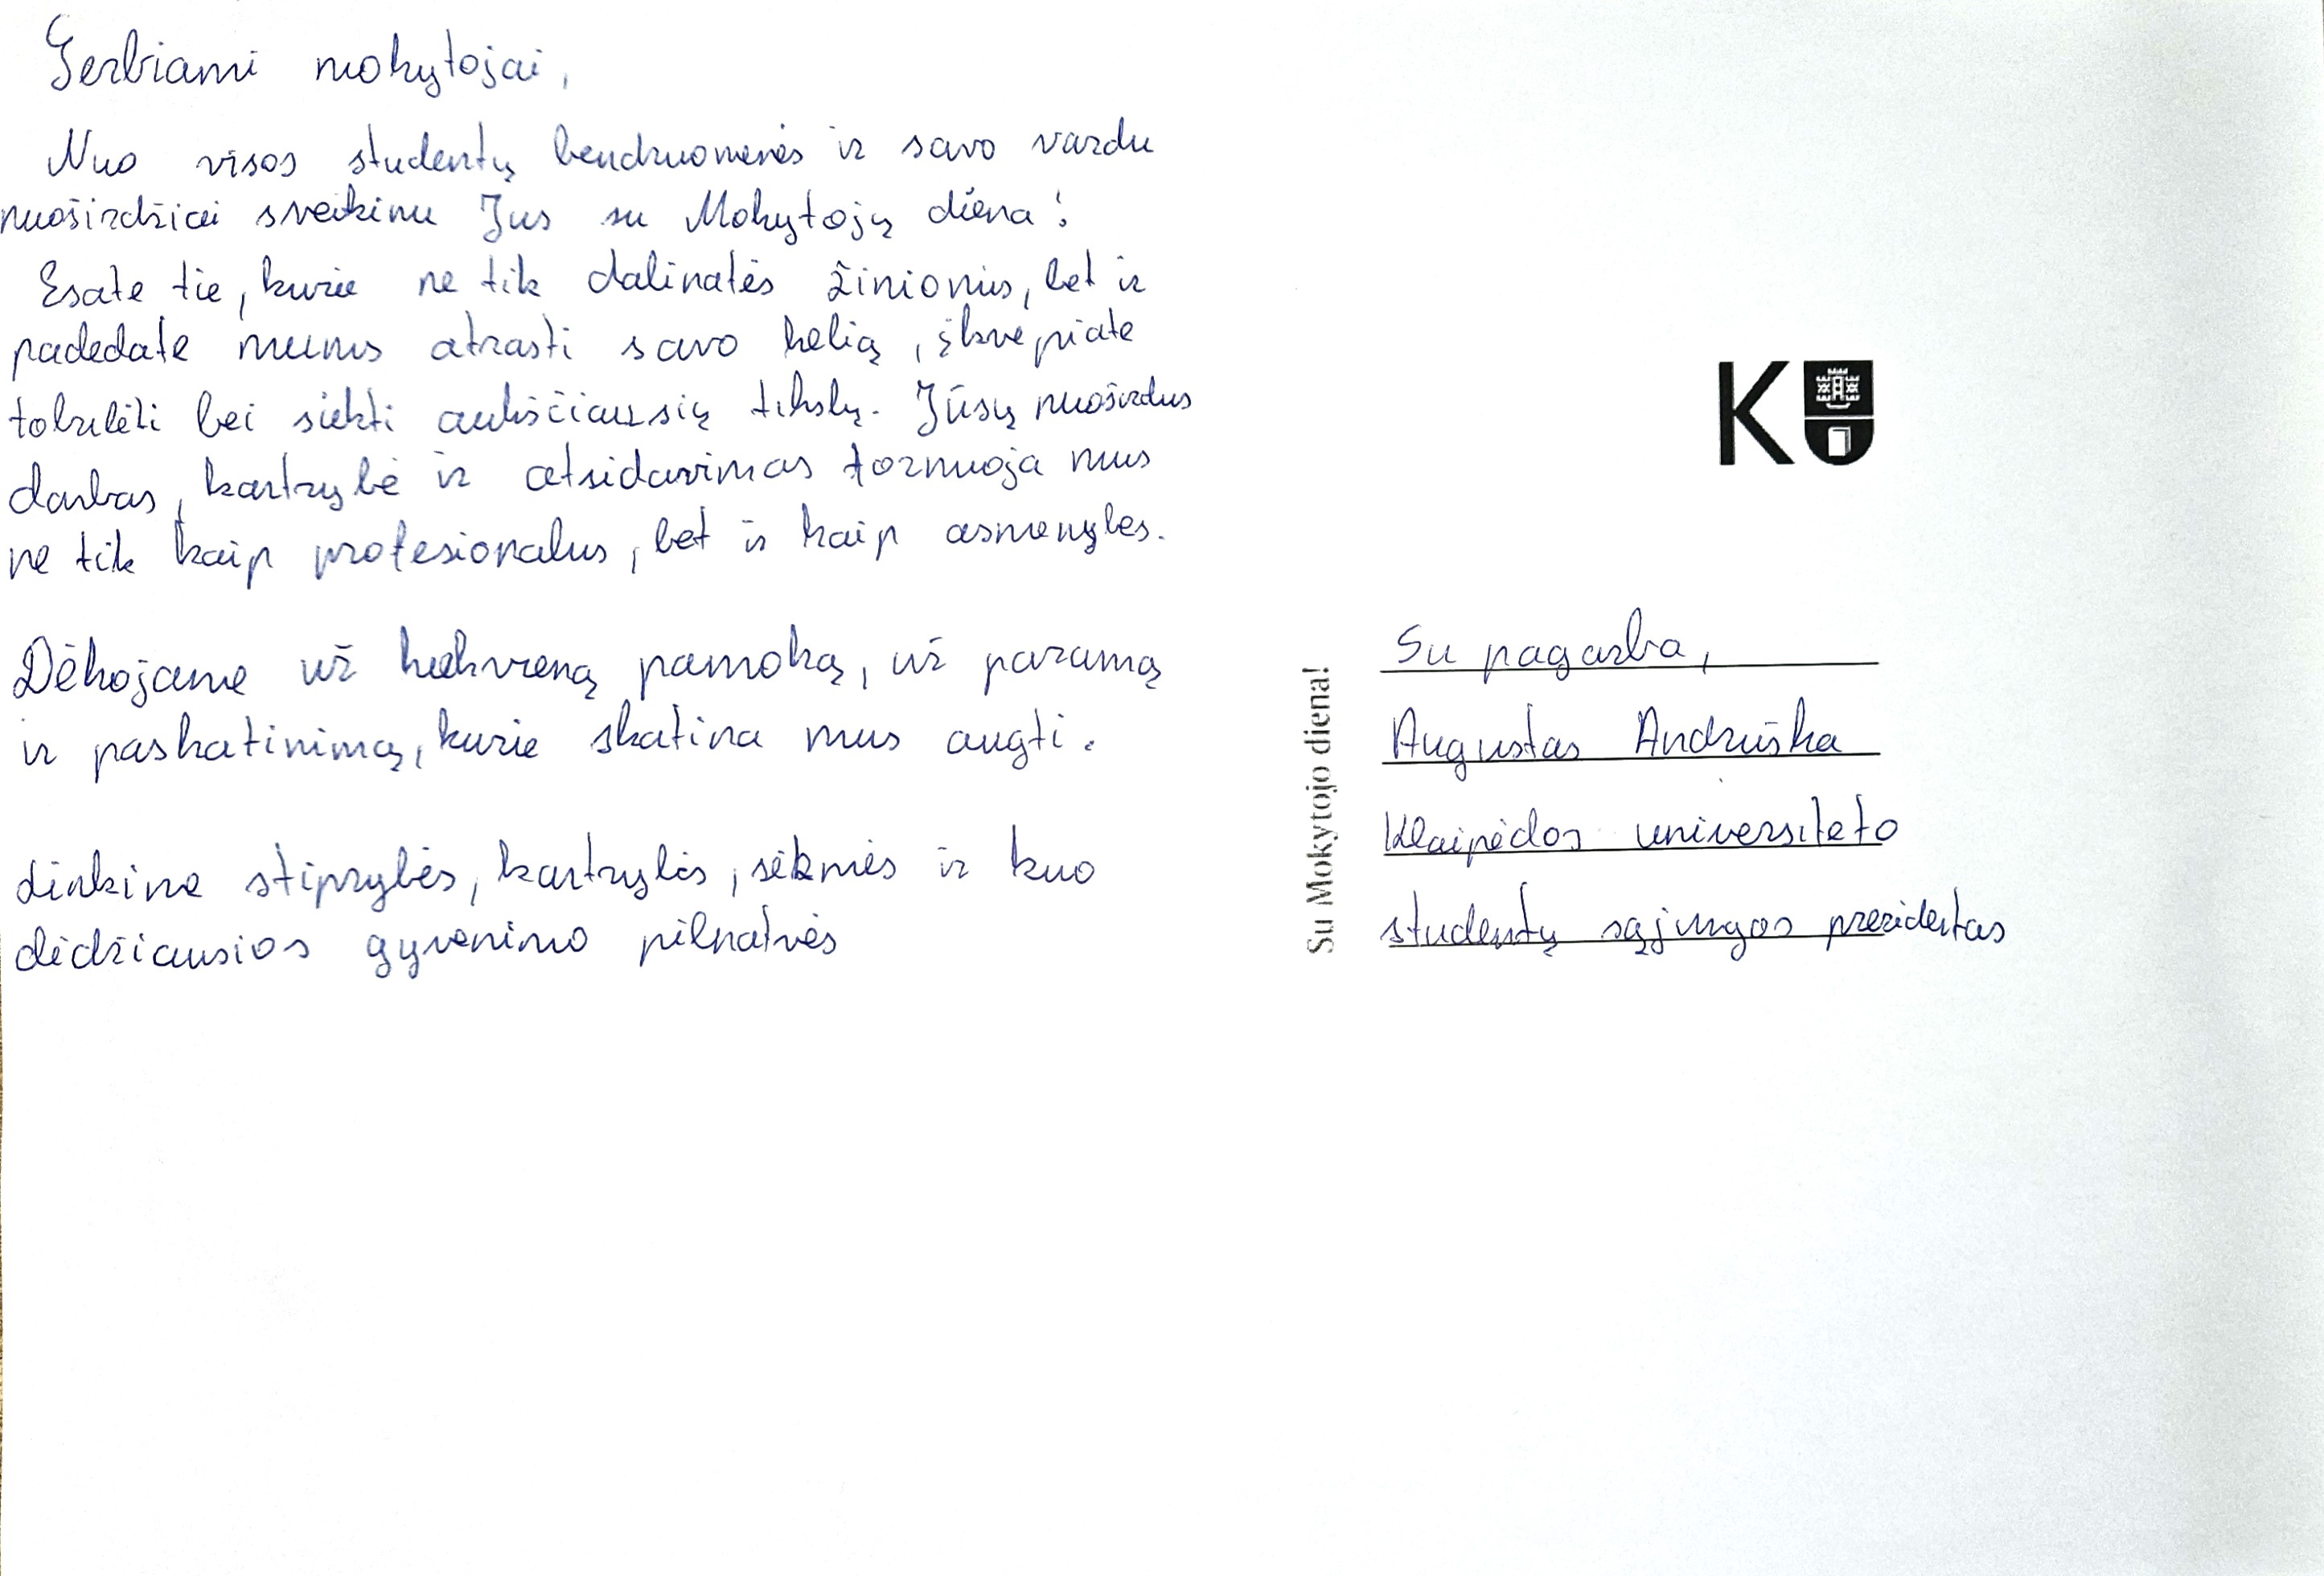 Gerbiami mokytojai,
Nuo visos studentų bendruomenės ir savo vardu
nuoširdžiai sveikinu Jus su Mokytojų diena!
Esate tie, kurie ne tik dalinatės žiniomis, bet ir
padedate mums atrasti savo kelią, įkvepiate
tobulėti bei siekti aukščiausių tikslų. Jūsų nuoširdus
darbas, kantrybė ir atsidavimas formuoja mus
ne tik kaip profesionalus, bet ir kaip asmenybes.
Dėkojame už kiekvieną pamoką, už paramą
ir paskatinimą, kurie skatina mus augti.
Linkime stiprybės, kantrybės, sėkmės ir kuo
didžiausios gyvenimo pilnatvės
KU
Su Mokytojo diena!
Su pagarba,
Augustas Andriuška
Klaipėdos universiteto
studentų sąjungos prezidentas